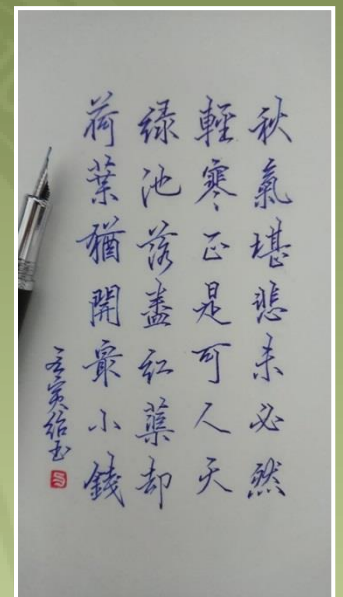 秋氣堪悲未必然
輕寒正是可人天
绿池落盡红蕖却
荷葉猶開最小錢
壬寅绍玉